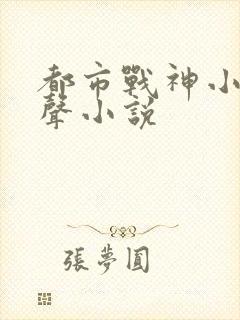 都市戰神小
聲小說
張夢圓